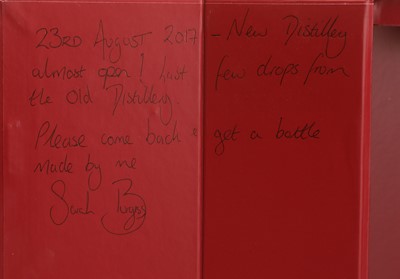 23RD August 2017 – New Distillery
almost open! Last few drops from
the Old Distillery
Please come back & get a bottle
made by me